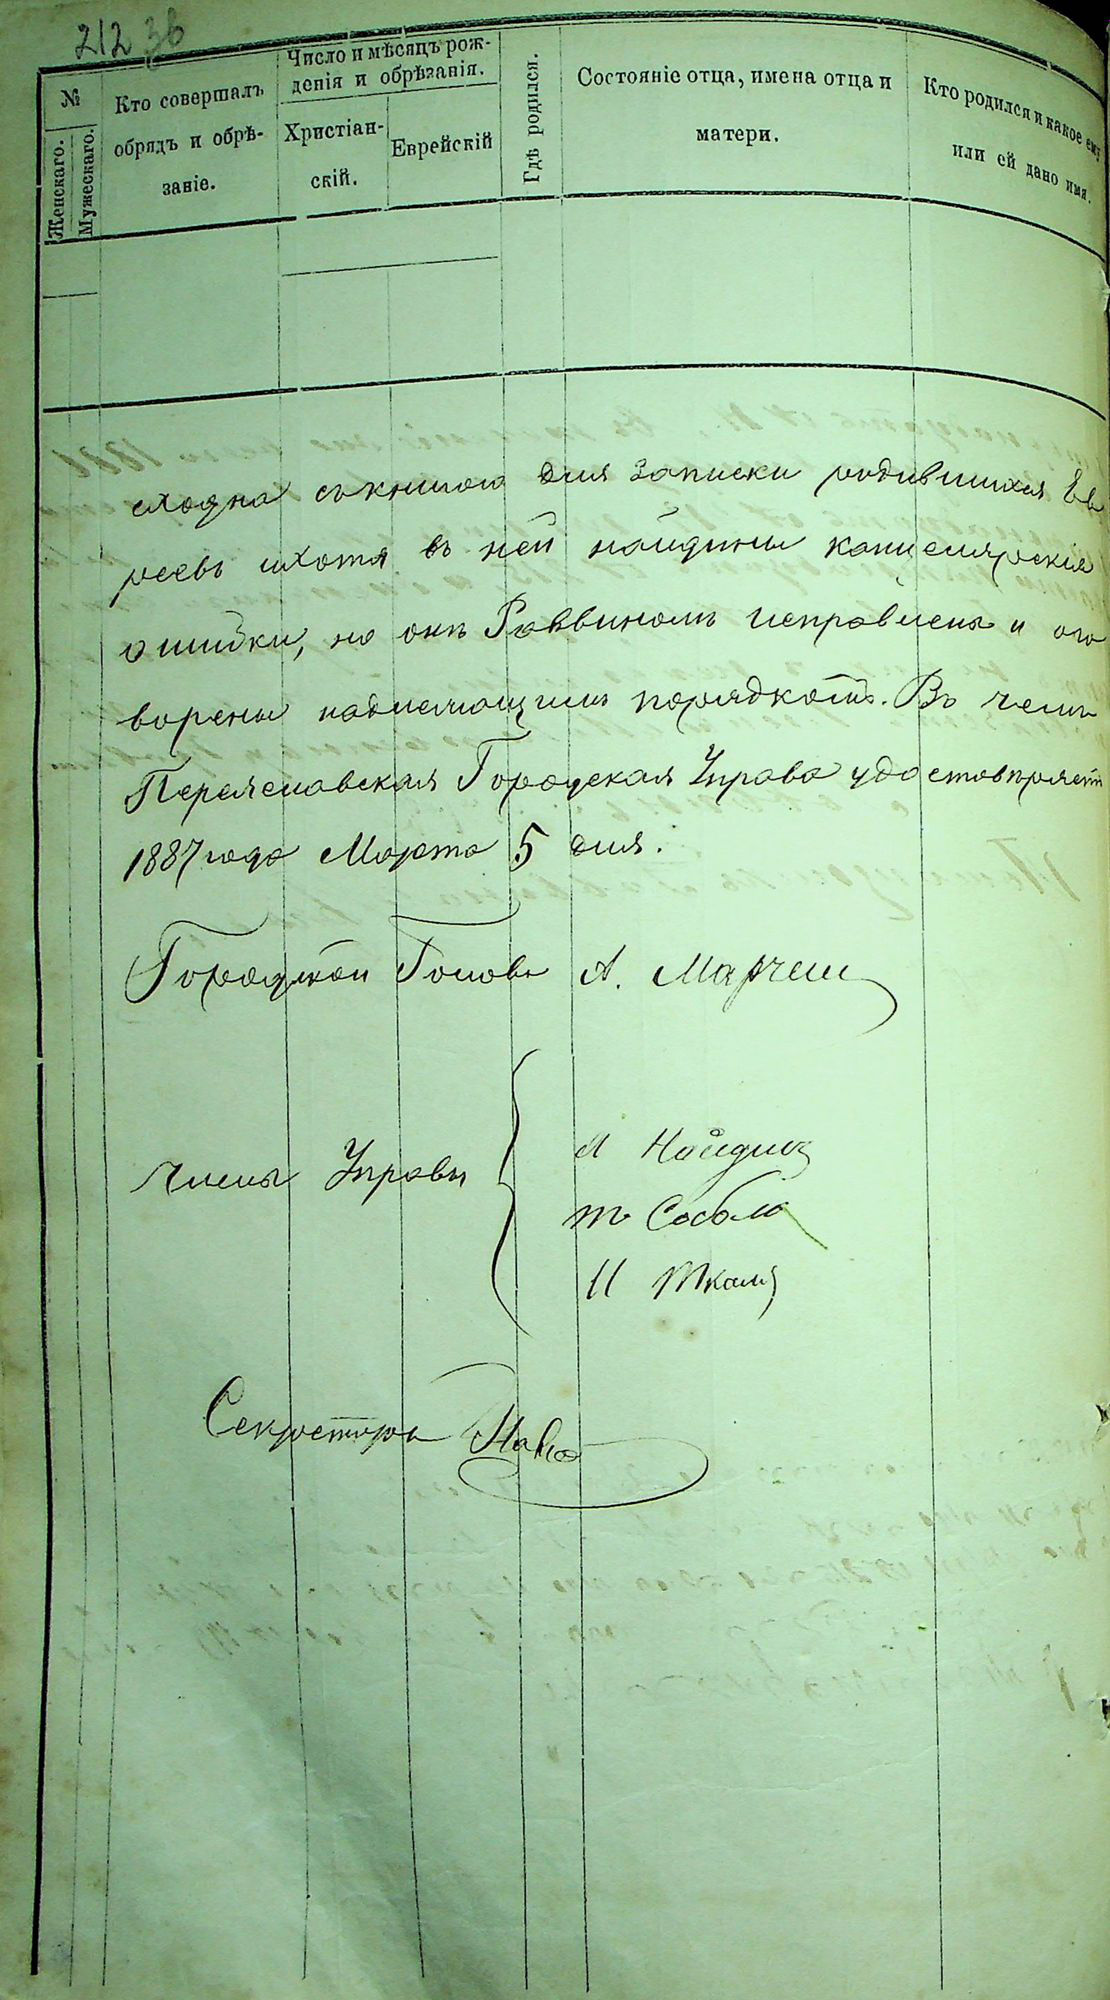 212 36
№
Женскаго.
Мужескаго.
Кто совершалъ
обрядъ и обрѣ-
заніе.
Число и мѣсяцъ рож-
денія и обрѣзанія.
Христіан-
скій.
Еврейскій
Гдѣ родился.
Состояніе отца, имена отца и
матери.
Кто родился и какое ему
или ей дано имя.
сходна съ книгою для записки родившихся Ев
реевъ и хотя въ ней найдены канцелярскія
ошибки, но онѣ Раввиномъ исправлены и ого
ворены надлежащимъ порядкомъ. Въ чемъ
Переяславская Городская Управа удостовѣряетъ
1887 года Марта 5 дня.
Городской Голова А.
Члены Управы
Секретарь